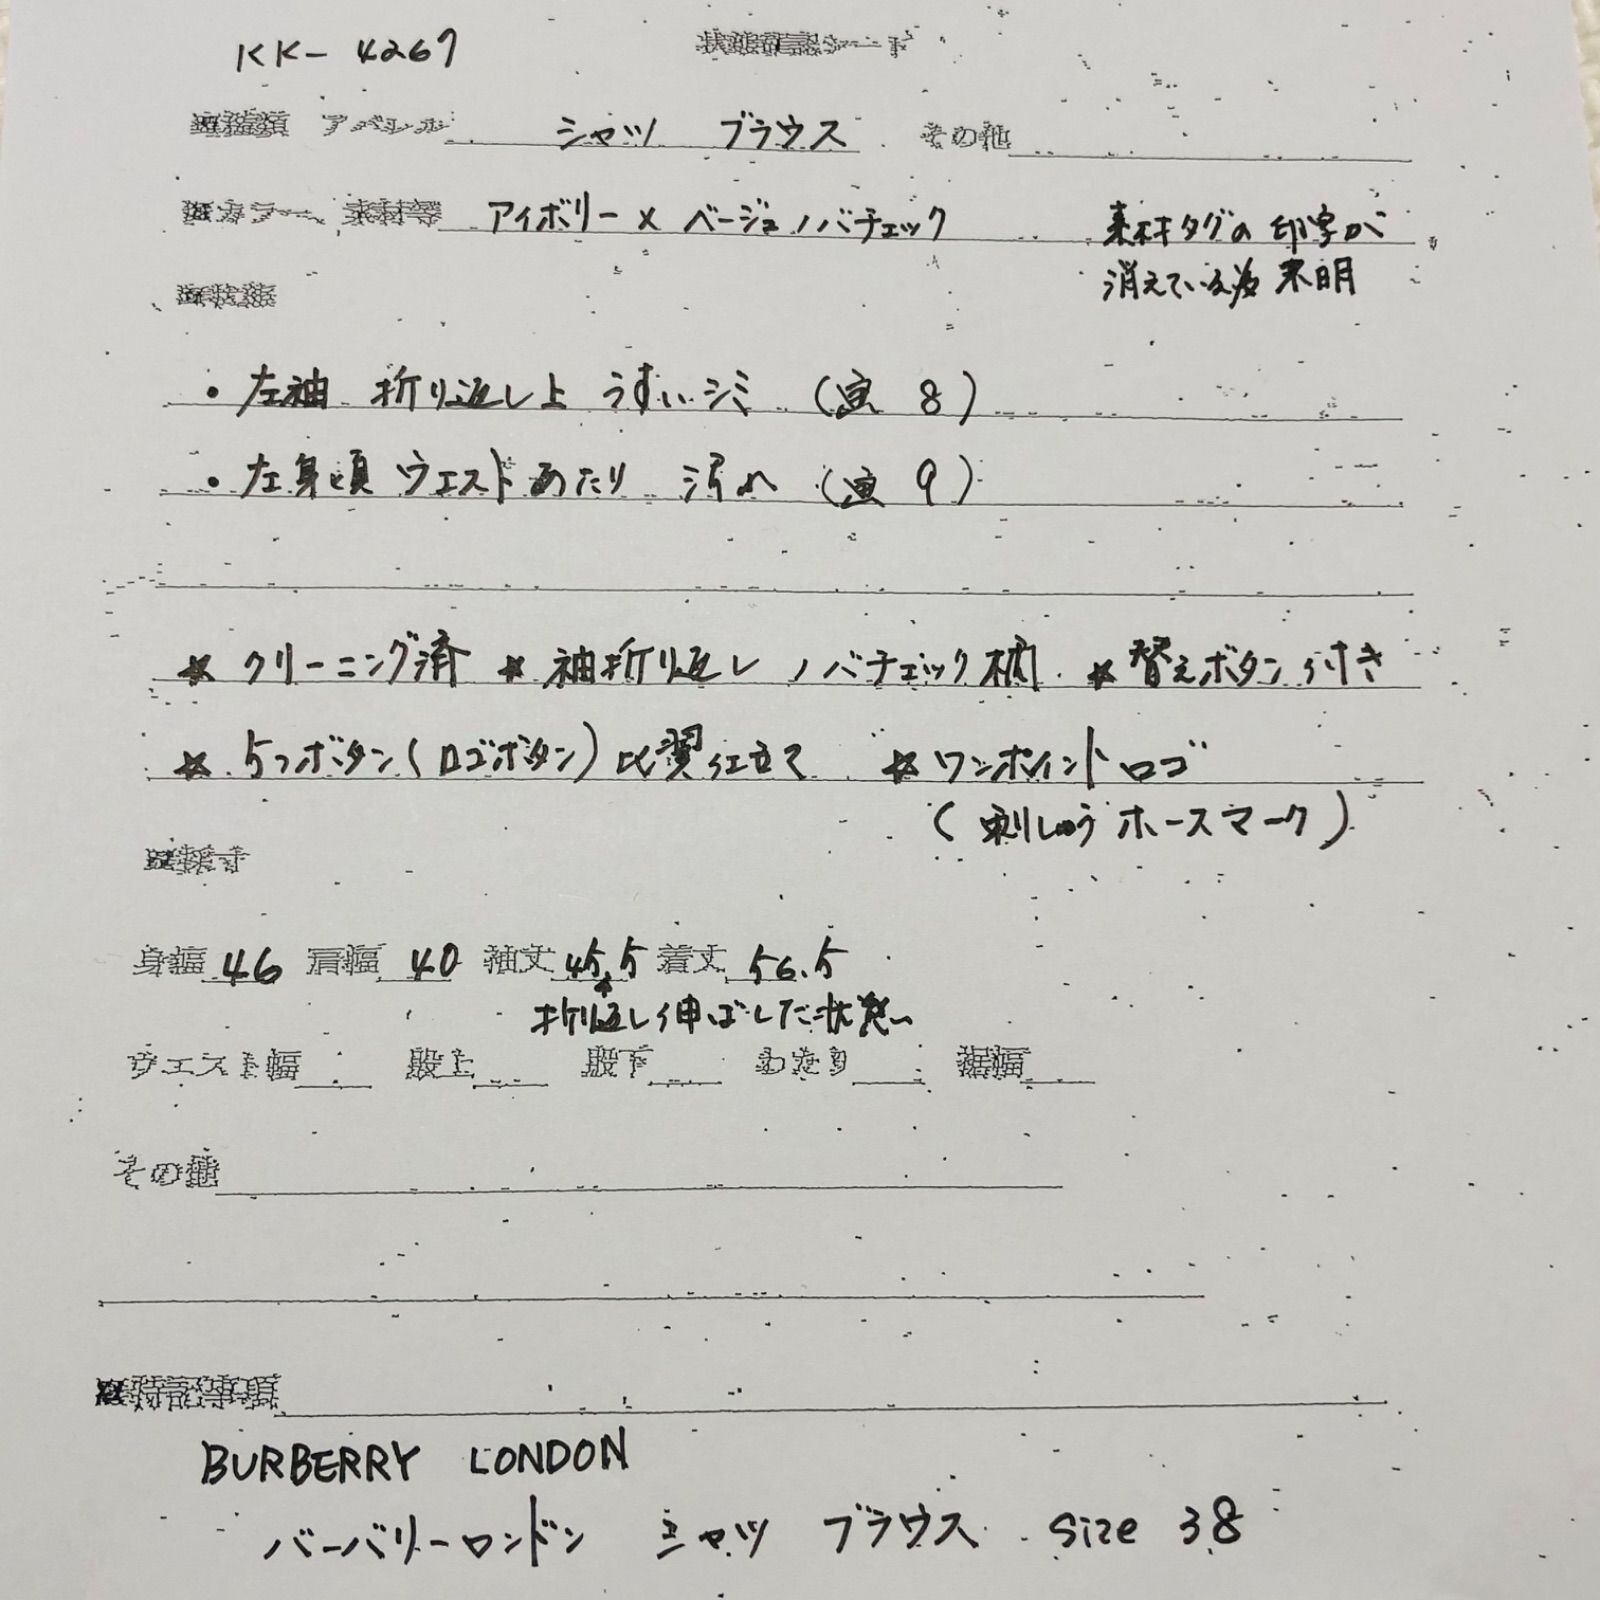 KK- 4267
状態確認シート
■種類 アパレル シャツ ブラウス その他
■カラー、素材等 アイボリー × ベージュノバチェック 素材タグの印字が
消えている為 不明
■状態
・左袖 折り返し上 うすいシミ (写 8)
・左身頃 ウエストあたり 汚れ (写 9)
☆ クリーニング済 ☆ 袖折り返し ノバチェック柄 ☆ 替えボタン付き
☆ 5つボタン(ロゴボタン)比翼仕立て ☆ ワンポイントロゴ
(刺しゅうホースマーク)
■採寸
身幅 46 肩幅 40 袖丈 45.5 着丈 56.5
↑
折り返し伸ばした状態
ウエスト幅 股上 股下 わたり 裾幅
その他
■特記事項
BURBERRY LONDON
バーバリーロンドン シャツ ブラウス size 38